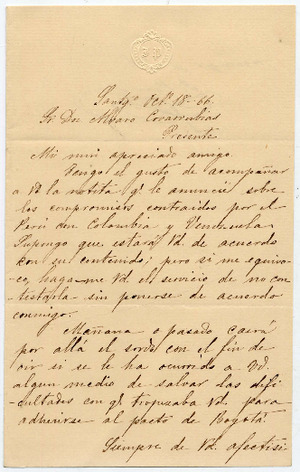 Santgo. Octe. 18-66.
Sr. Don Alvaro Covarrubias
Presente
Mi mui apreciado amigo.
Tengo el gusto de acompañar
a Vd la notita q' le anuncié sobre
los compromisos contraidos por el
Perú con Colombia y Venezuela
Supongo que estará Vd. de acuerdo
con su contenido; pero si me equivo-
co, haga-me Vd. el servicio de no con-
testarla sin ponerse de acuerdo
conmigo.
Mañana o pasado caerá
por allá el sordo con el fin de
oir si se le ha ocurrido a Vd.
algun medio de salvar las difi-
cultades con q' tropezaba Vd. para
adherirse al pacto de Bogotá.
Siempre de Vd. afectísi